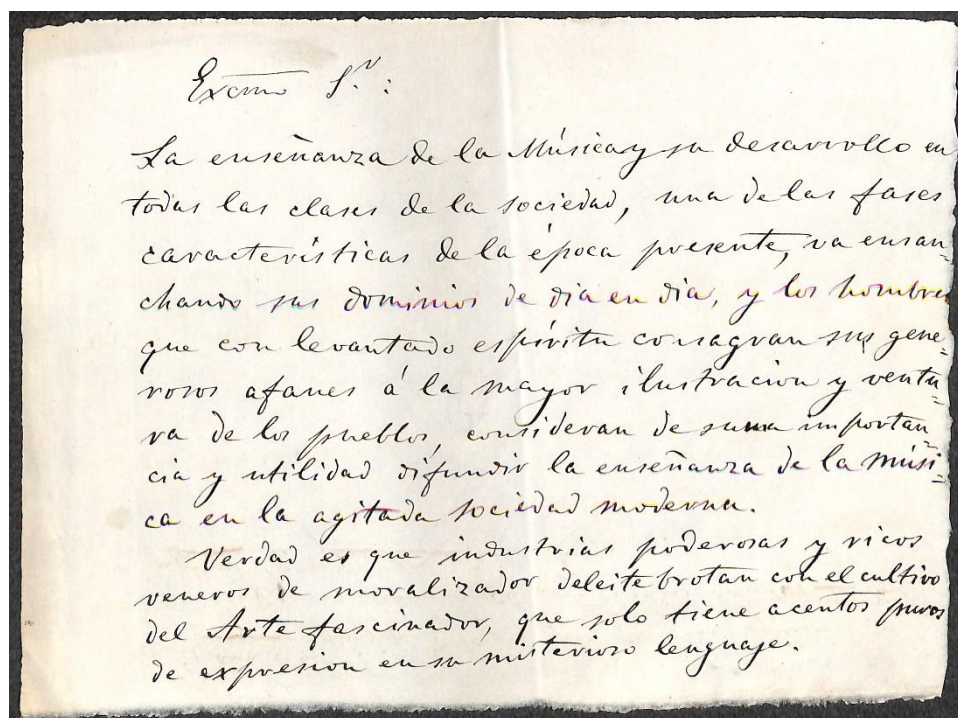 Excmo Sr.:
La enseñanza de la Música y su desarrollo en
todas las clases de la sociedad, una de las fases
características de la época presente, va ensan-
chando sus dominios de dia en dia, y los hombres
que con levantado espíritu consagran sus gene-
rosos afanes á la mayor ilustracion y ventu-
ra de los pueblos, consideran de suma importan-
cia y utilidad difundir la enseñanza de la músi-
ca en la agitada sociedad moderna.
Verdad es que industrias poderosas y ricos
veneros de moralizador deleite brotan con el cultivo
del Arte fascinador, que solo tiene acentos puros
de expresion en su misterioso lenguaje.